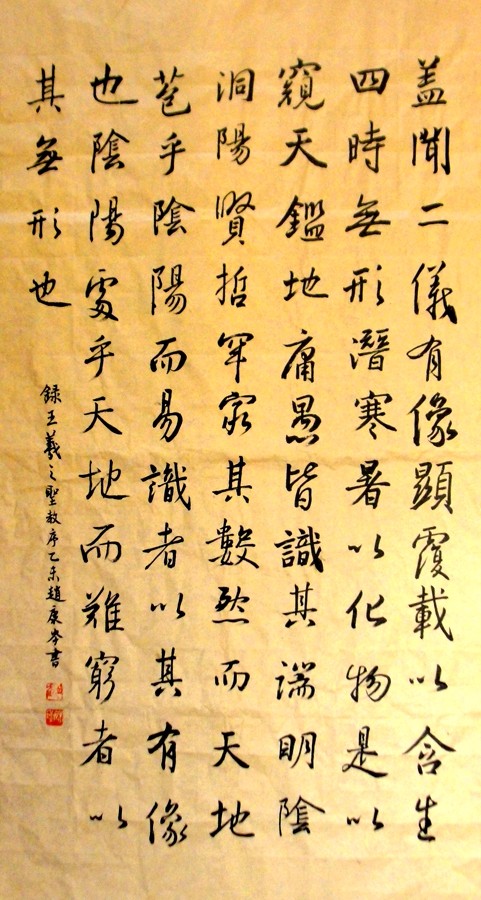 蓋聞二儀有像顯覆載以含生
四時無形潛寒暑以化物是以
窺天鑑地庸愚皆識其端明陰
洞陽賢哲罕窮其數然而天地
苞乎陰陽而易識者以其有像
也陰陽處乎天地而難窮者以
其無形也
錄王羲之聖教序乙未趙庚岑書